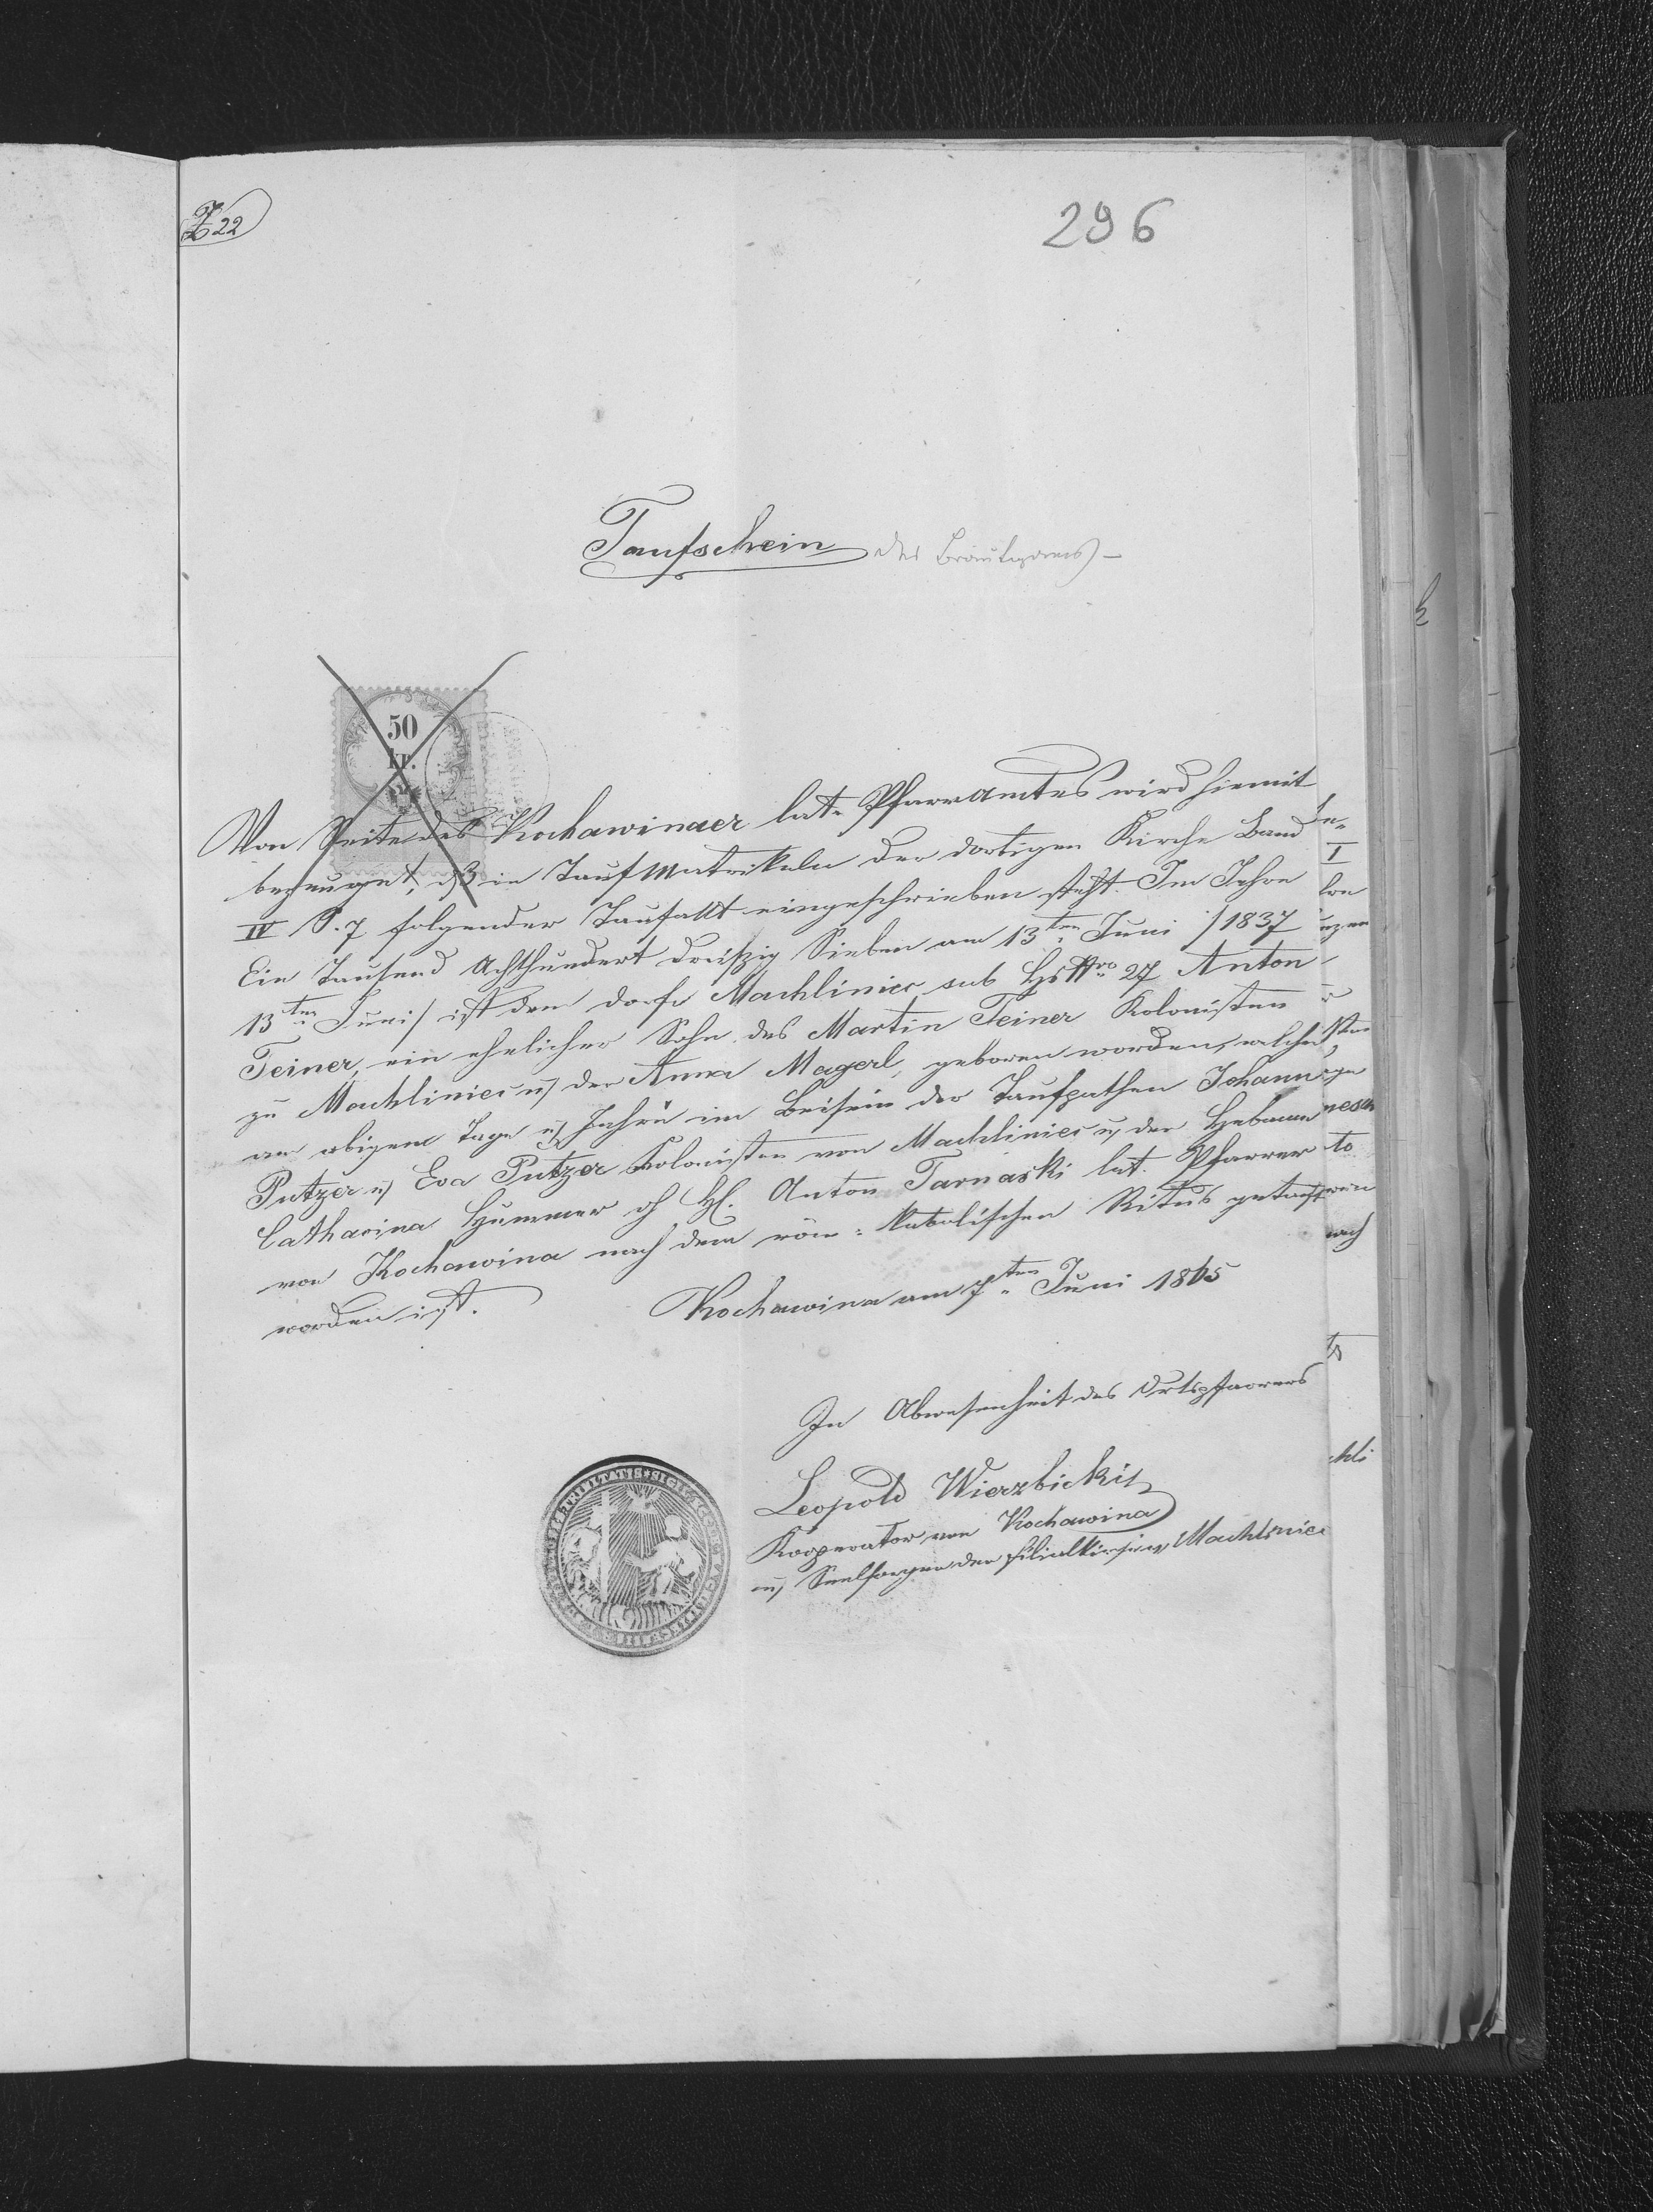 Z 22
296
Taufschein des Bräutigams
50
kr.
Von Seite des Kochawinaer lat. Pfarramtes wird hiemit
bezeuget, daß in Taufmatrikeln der dortigen Kirche Band
IV S. 7 folgender Taufakt eingeschrieben steht. Im Jahre
Ein Tausend Achthundert dreißig Sieben am 13ten Juni /1837
13ten Juni/ ist dem Dorfe Machliniec sub Hs Nro 27 Anton
Teiner, ein ehelicher Sohn des Martin Teiner Kolonisten
zu Machliniec u, der Anna Magerl, geboren worden, welcher
am obigem Tage u, Jahre im Beisein der Taufpathen Johann
Putzer u, Eva Putzer Kolonisten von Machliniec u, der Hebamme
Catharina Hummer H. Anton Tarnaski lat. Pfarrer
von Kochawina nach dem röm: katolischen Ritus getauft
worden ist.
Kochawina am 7ten Juni 1865
In Abwesenheit des Ortspfarrers
Leopold Wierzbicki
Kooperator von Kochawina
u, Seelsorger der Filialkirche Machliniec